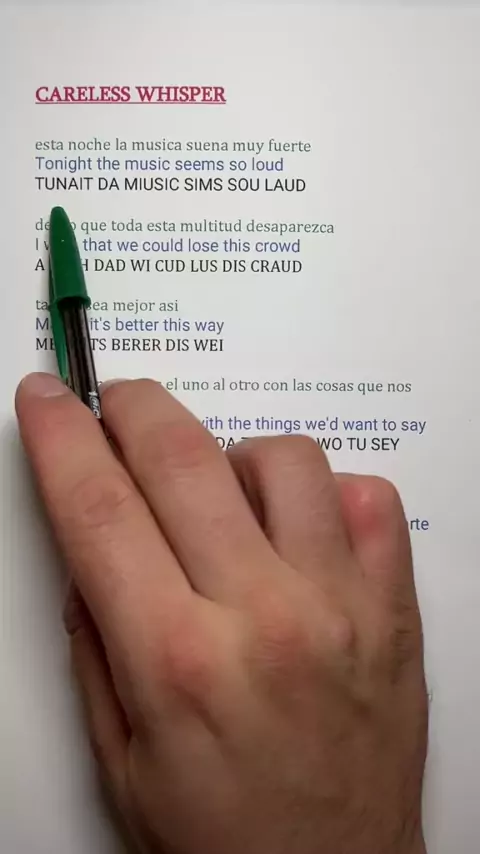 CARELESS WHISPER
esta noche la musica suena muy fuerte
Tonight the music seems so loud
TUNAIT DA MIUSIC SIMS SOU LAUD
que toda esta multitud desaparezca
I that we could lose this crowd
A DAD WI CUD LUS DIS CRAUD
sea mejor asi
it's better this way
BERER DIS WEI
el uno al otro con las cosas que nos
with the things we'd want to say
DA WO TU SEY
BIC